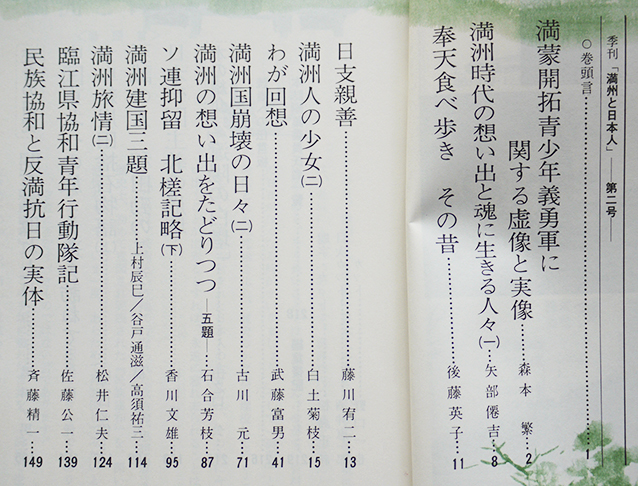 季刊「満州と日本人」——第二号——
○巻頭言……1
満蒙開拓青少年義勇軍に
関する虚像と実像……森本繁…2
満洲時代の想い出と魂に生きる人々(一)…矢部僊吉…8
奉天食べ歩き その昔……後藤英子…11
日支親善……藤川宥二…13
満洲人の少女(二)……白土菊枝…15
わが回想……武藤富男…41
満洲国崩壊の日々(二)……古川元…71
満洲の想い出をたどりつつ——五題——石合芳枝…87
ソ連抑留 北槎記略(下)……香川文雄…95
満洲建国三題……上村辰巳/谷戸通滋/高須祐三…114
満洲旅情(二)……松井仁夫…124
臨江県協和青年行動隊記……佐藤公一…139
民族協和と反満抗日の実体……斉藤精一…149